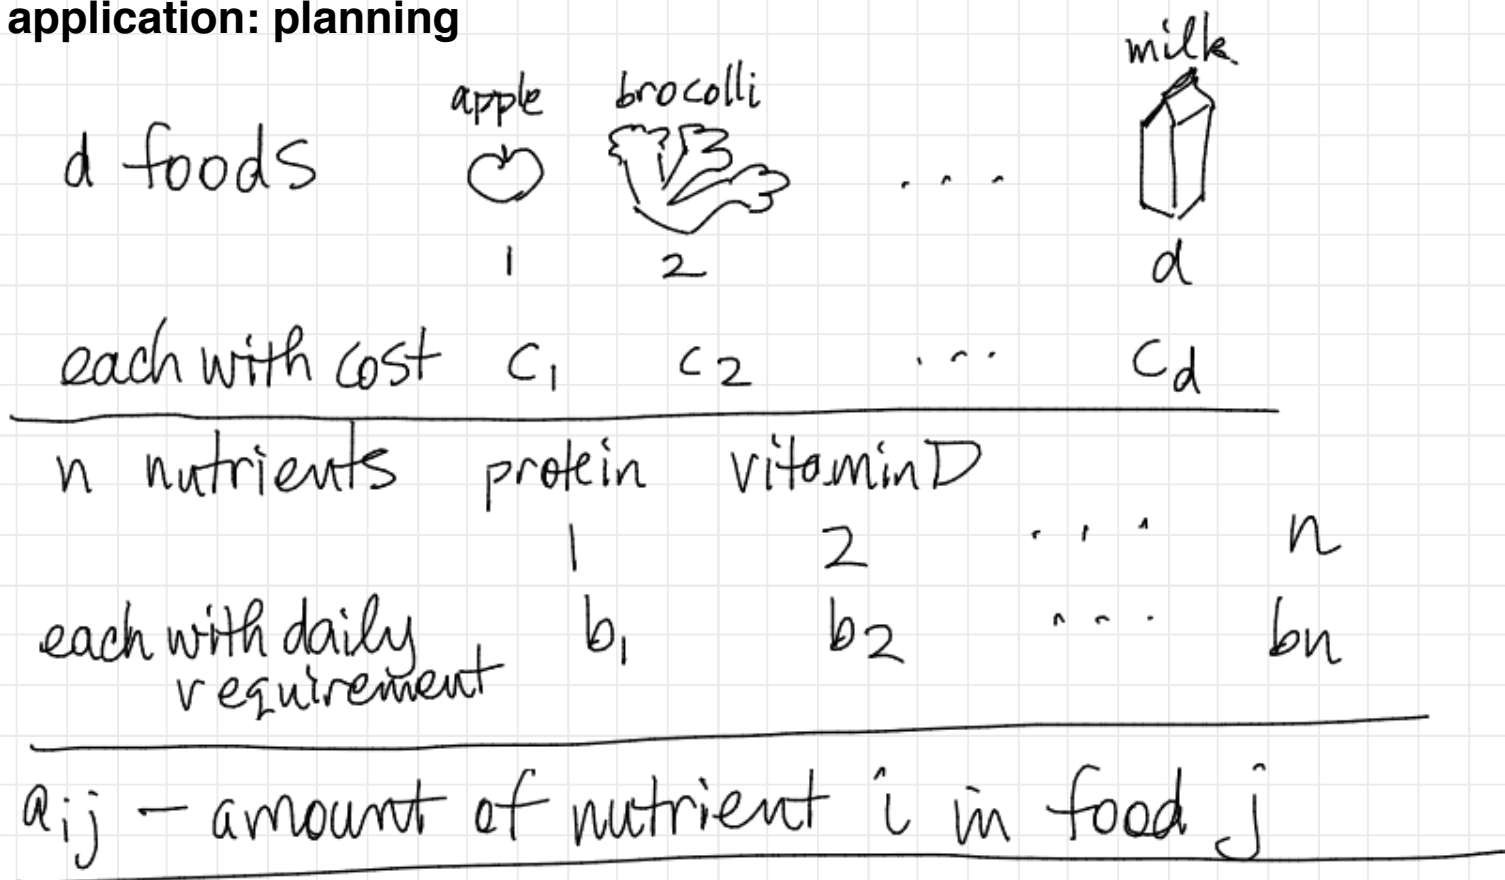 application: planning
milk
apple brocolli
d foods ...
1 2 d
each with cost c1 c2 ... cd
n nutrients protein vitamin D
1 2 ... n
each with daily b1 b2 ... bn
requirement
aij – amount of nutrient i in food j